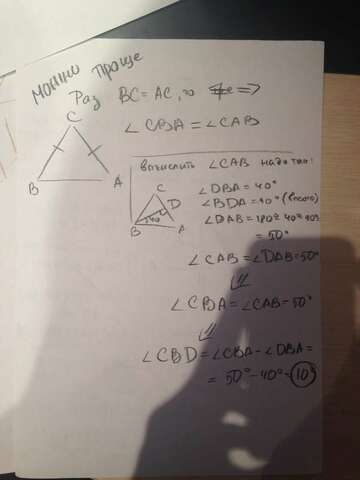 можно проще
Раз BC = AC, =>
∠CBA = ∠CAB
C
B
A
вычислить ∠CAB надо так:
C
D
40°
B
A
∠DBA = 40°
∠BDA = 90° (высота)
∠DAB = 180° - 40° - 90°
= 50°
∠CAB = ∠DAB = 50°
⇓
∠CBA = ∠CAB = 50°
⇓
∠CBD = ∠CBA - ∠DBA =
= 50° - 40° = 10°